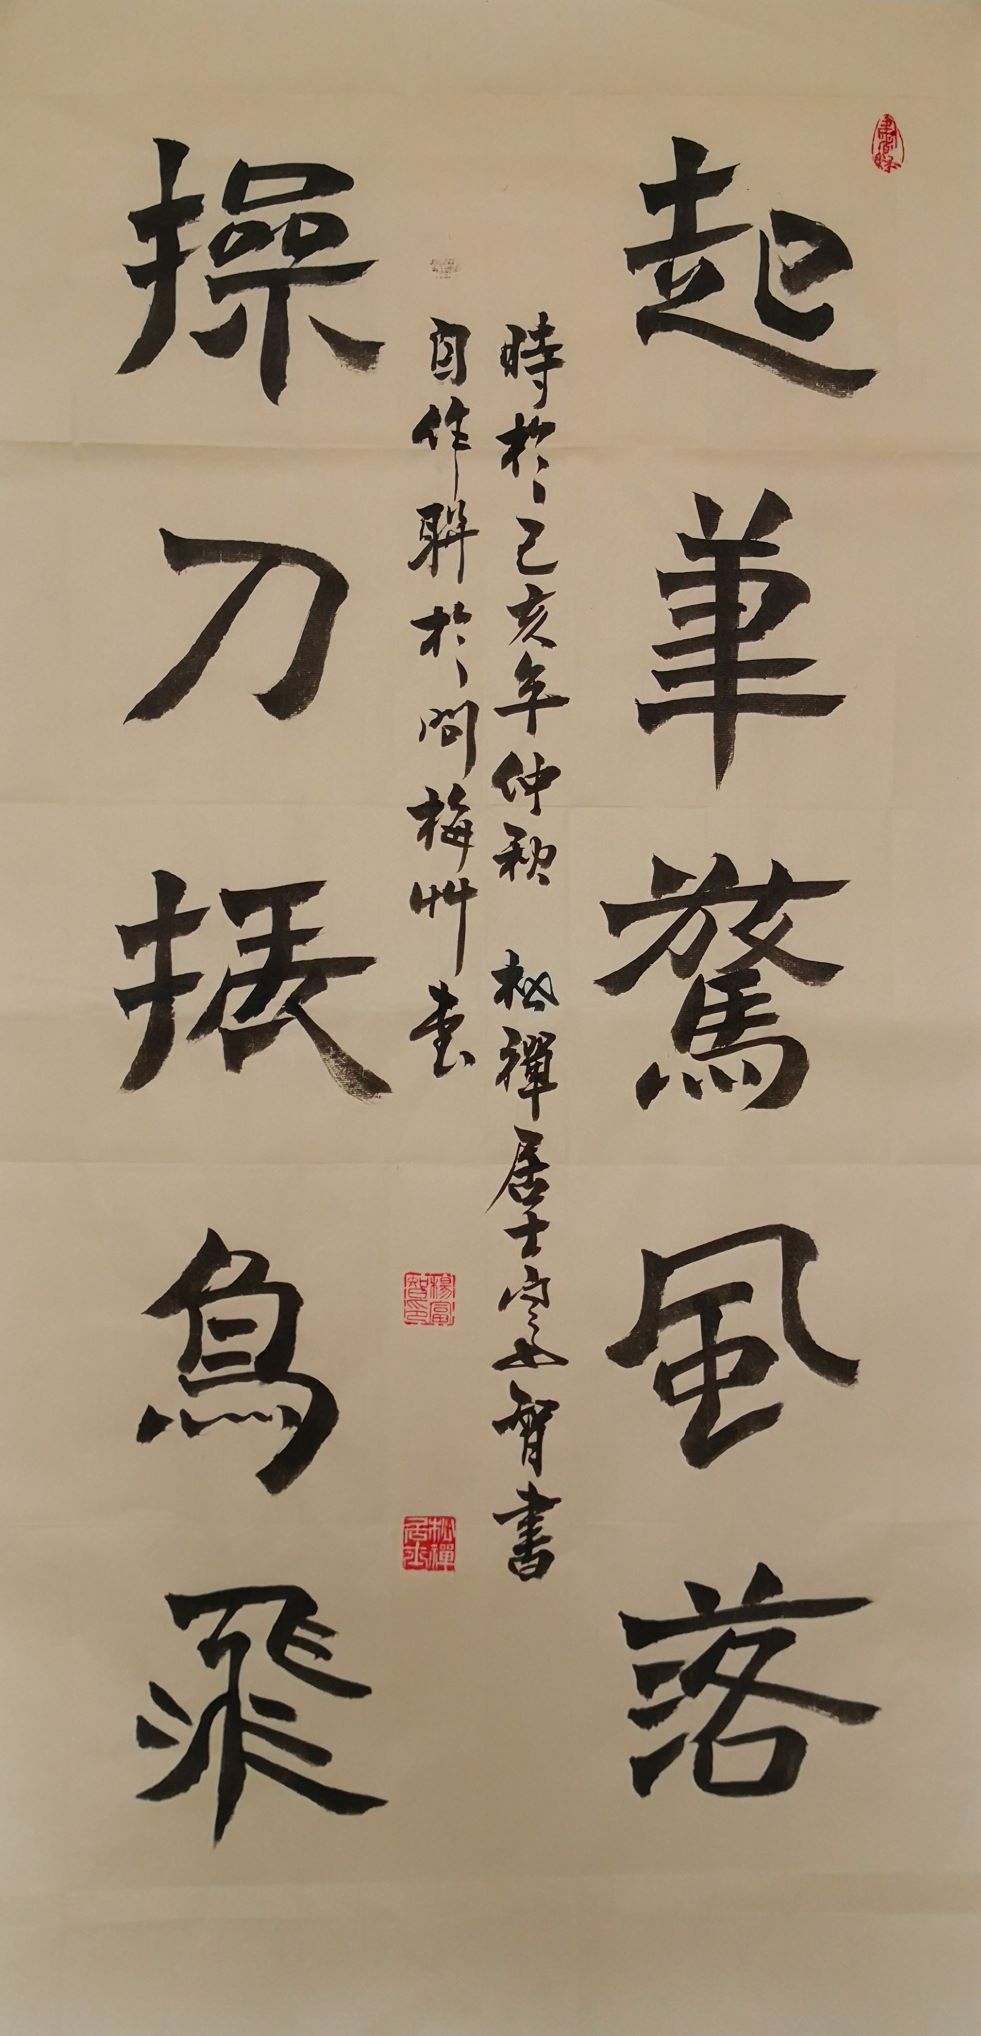 起筆驚風落
操刀振鳥飛
時於己亥年仲秋 松禪居士 智書
自作聯於問梅艸堂
楊富智印
松禪居士